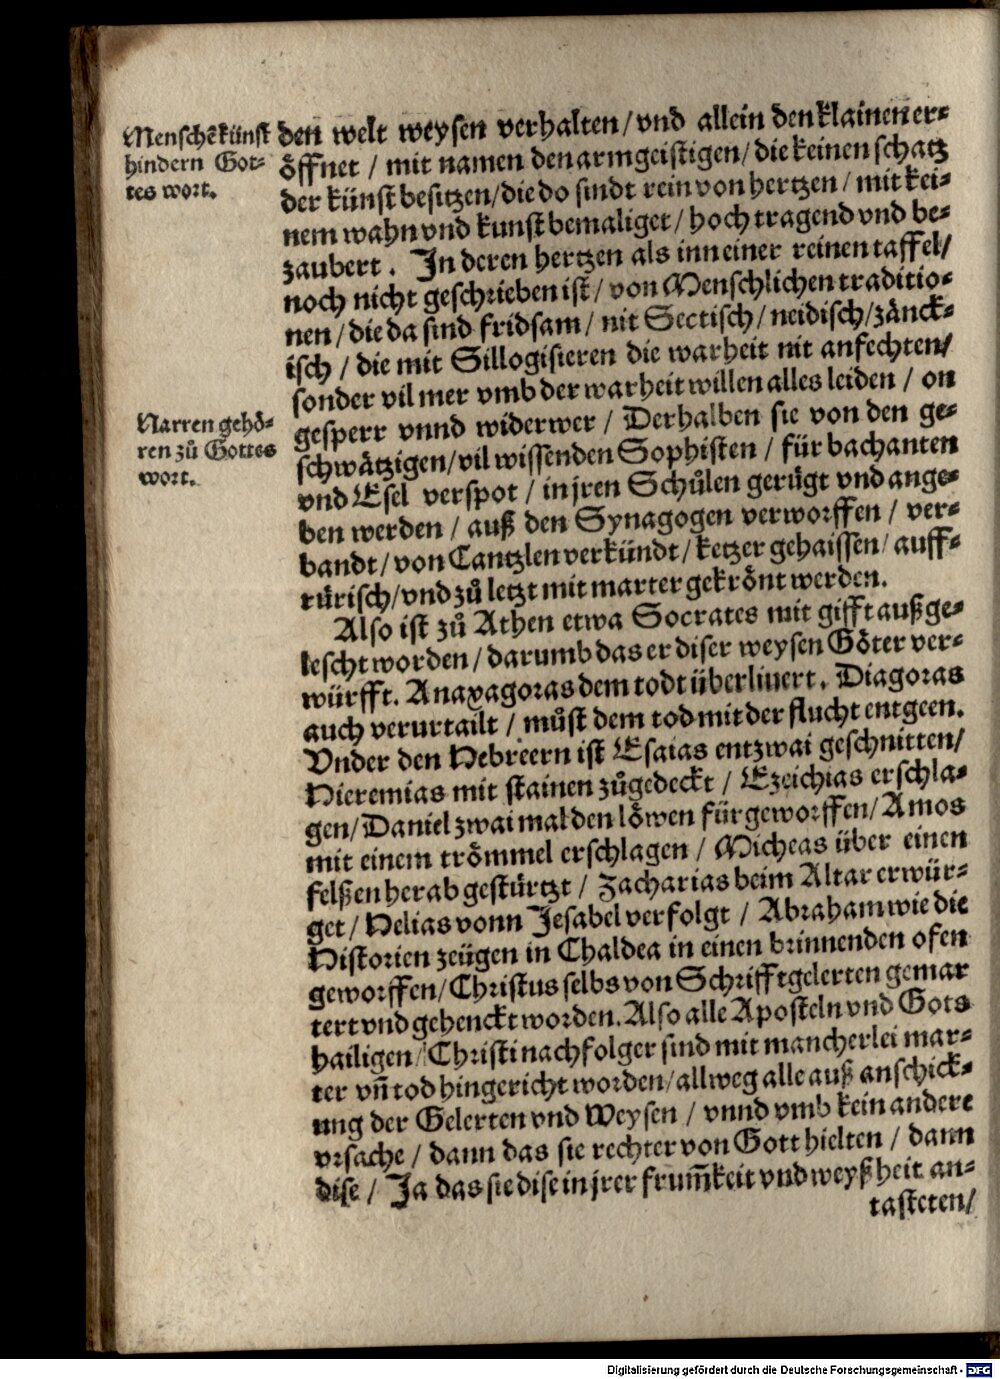 Menschẽkünst
hindern Got-
tes wort.
den welt weysen verhalten/ vnd allein den klainen er-
öffnet / mit namen den armgeistigen/ die keinen schatz
der künst besitzen/ die do sindt rein von hertzen / mit kei-
nem wahn vnd kunst bemaliget / hoch tragend vnd be-
zaubert. In deren hertzen als inn einer reinen taffel/
noch nicht geschrieben ist / von Menschlichen traditio-
nen / die da sind fridsam / nit Sectisch / neidisch / zänck-
isch / die mit Sillogisieren die warheit nit anfechten/
sonder vil mer vmb der warheit willen alles leiden / on
Narren gehö-
ren zů Gottes
wort.
gesperr vnnd widerwer / Derhalben sie von den ge-
schwätzigen/ vil wissenden Sophisten / für bachanten
vnd Esel verspot / in jren Schůlen gerügt vnd ange-
ben werden / auß den Synagogen verworffen / ver-
bandt/ von Cantzlen verkündt / ketzer gehaissen/ auff-
rürisch/ vnd zů letzt mit marter gekrönt werden.
Also ist zů Athen etwa Socrates mit gifft außge-
lescht worden / darumb das er diser weysen Göter ver-
würfft. Anaxagoras dem todt überliuert. Diagoras
auch verurtailt / můst dem tod mit der flucht entgeen.
Vnder den Hebreern ist Esaias entzwai geschnitten/
Hieremias mit stainen zůgedeckt / Ezeichias erschla-
gen/ Daniel zwai mal den löwen für geworffen/ Amos
mit einem trömmel erschlagen / Micheas über einen
felßen herab gestürtzt / Zacharias beim Altar erwür-
get / Helias vonn Jesabel verfolgt / Abraham wie die
Historien zeügen in Chaldea in einen brinnenden ofen
geworffen/ Christus selbs von Schrifftgelerten gemar
tert vnd gehenckt worden. Also alle Aposteln vnd Gots
hailigen/ Christi nachfolger sind mit mancherlei mar-
ter vñ tod hingericht worden/ allweg alle auß anschick-
ung der Gelerten vnd Weysen / vnnd vmb kein andere
vrsache / dann das sie rechter von Gott hielten / dann
dise / Ja das sie dise in jrer frum̃keit vnd weyßheit an-
tasteten/
Digitalisierung gefördert durch die Deutsche Forschungsgemeinschaft - DFG